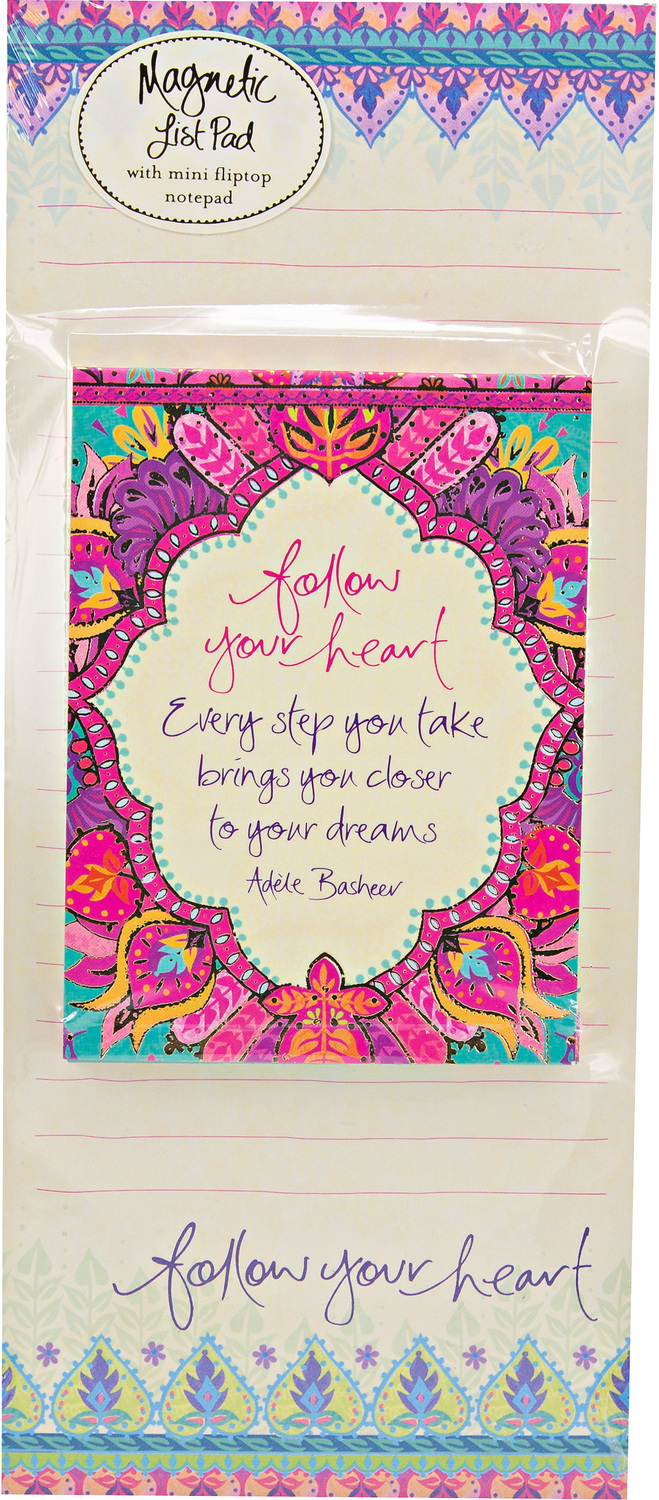 Magnetic
List Pad
with mini fliptop
notepad
follow
your heart
Every step you take
brings you closer
to your dreams
Adèle Basheer
follow your heart